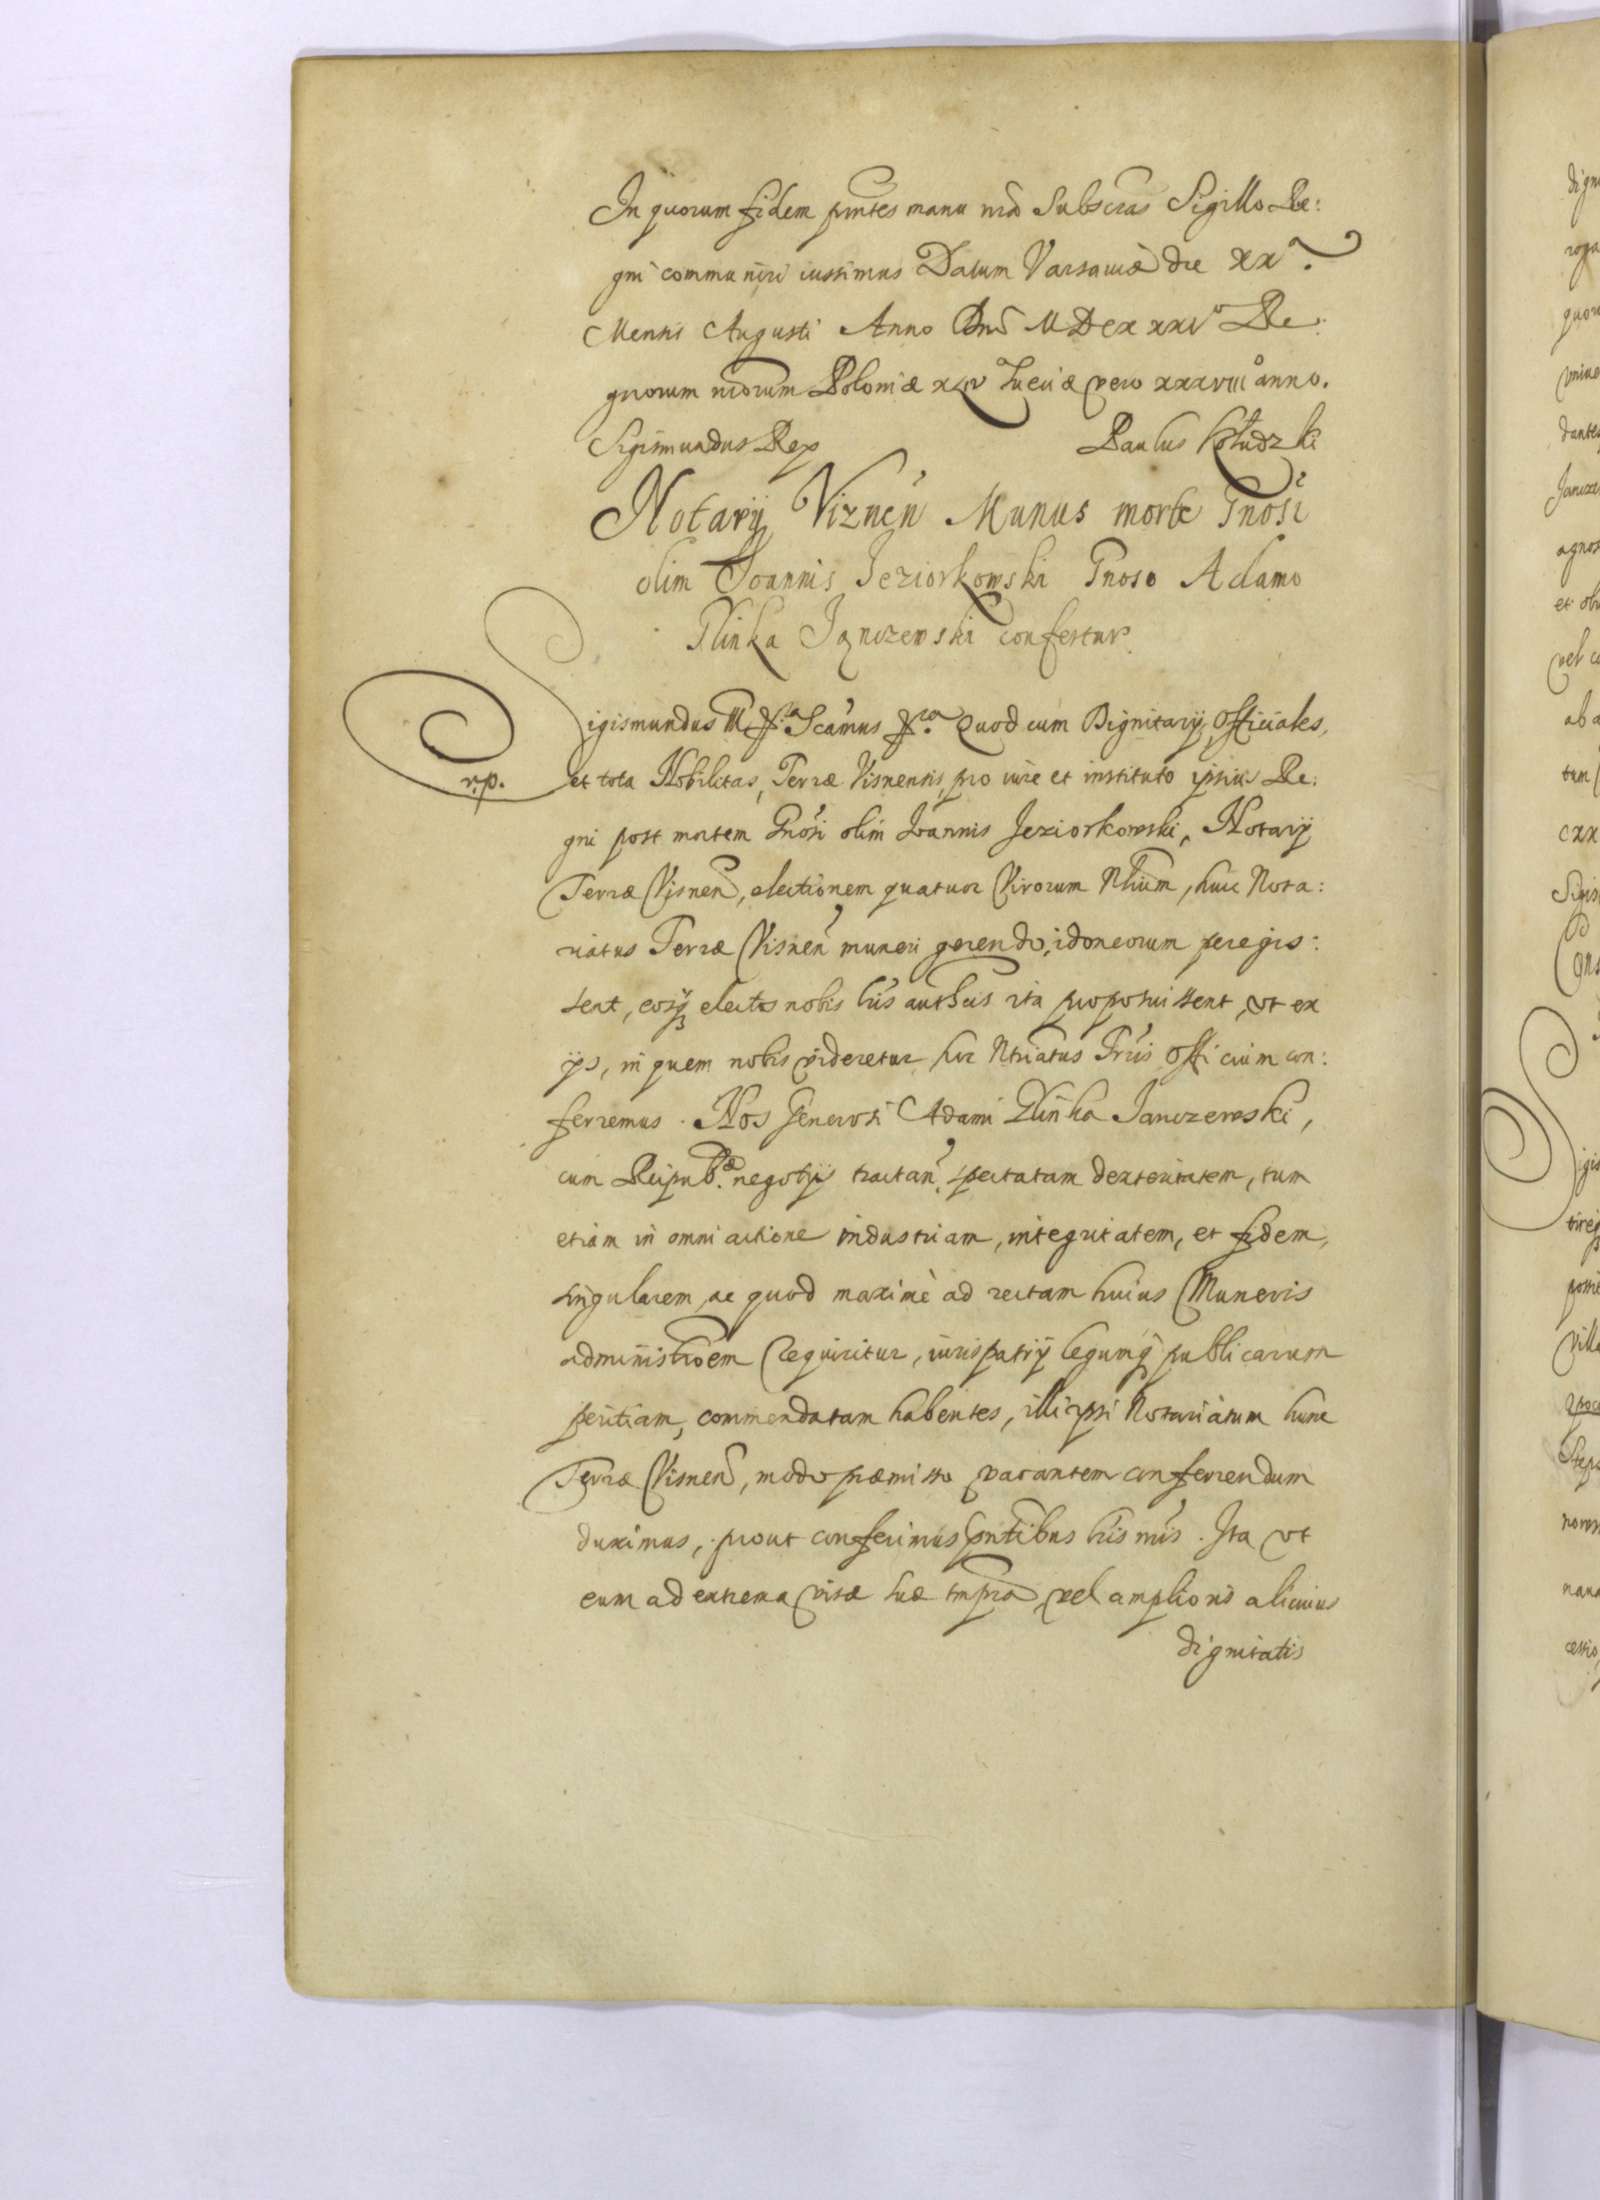 In quorum fidem pntes manu nra Subscras Sigillo Re:
gni communiri iussimus Datum Varsauiæ die XXa.
Mensis Augusti Anno Dni MDCXXXIo Re:
gnorum nrorum Poloniæ XLIV Sueciæ vero XXXVIII anno.
Sigismundus Rex Paulus Kołudzki
Notarij Viznen Munus morte Gnosi
olim Joannis Jeziorkowski Gnoso Adamo
Glinka Janczewski confertur.
Sigismundus III &ca Scamus &ca Quod cum Dignitarij, Officiales,
r.p. et tota Nobilitas, Terræ Visnensis, pro iure et instituto ipsius Re:
gni post mortem Gnosi olim Joannis Jeziorkowski, Notarij
Terræ Visnen, electionem quatuor Virorum Nlium, huic Nota:
riatus Terræ Visnen muneri gerendo, idoneorum peregis:
sent, eosq electos nobis lris authcis ita proposuissent, vt ex
ijs, in quem nobis videretur, hoc Ntriatus Trris Officium con:
ferremus. Nos Generosi Adami Glinka Janczewski,
cum Reipub. negotijs tractan. spectatam dexteritatem, tum
etiam in omni actione industriam, integritatem, et fidem,
singularem, ac quod maximè ad rectam huius Muneris
administroem requiritur, iuris patrij legumq publicarum
peritiam, commendatam habentes, illi ipsi Notariatum hunc
Terræ Visnen, modo præmisso vacantem conferrendum
duximus, prout conferimus pntibus lris nris. Ita vt
eum ad extrema vitæ suæ tmpra, vel amplioris alicuius
dignitatis